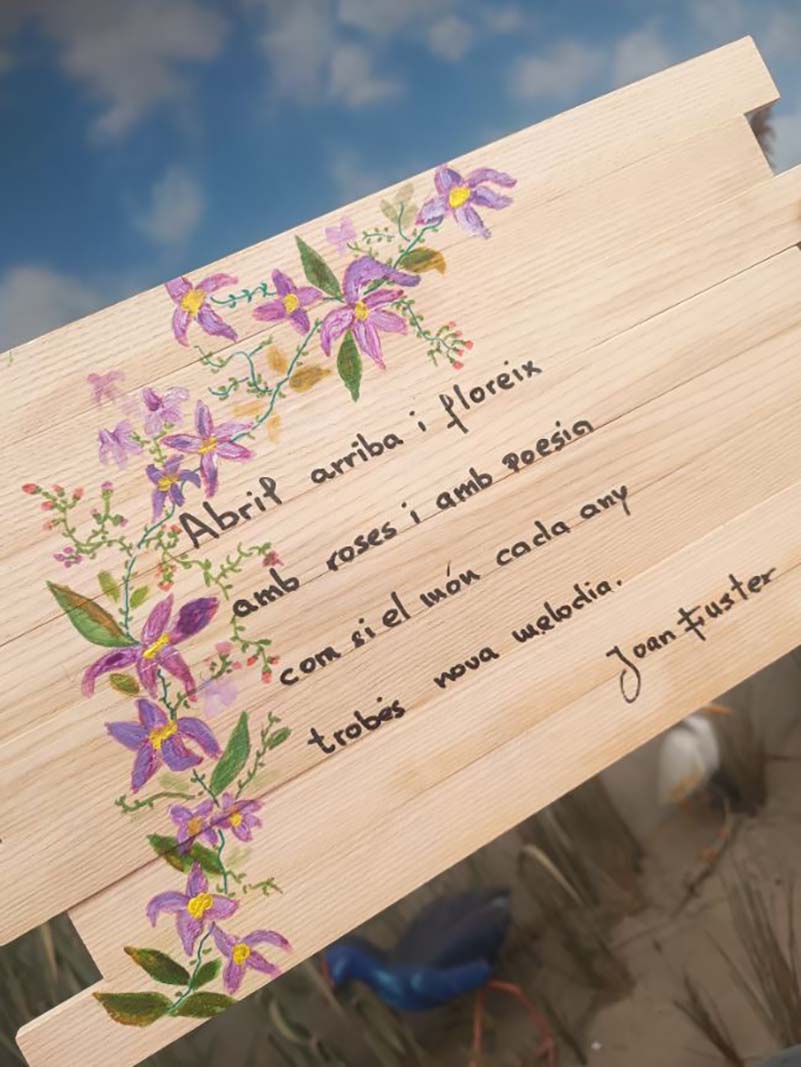 Abril arriba i floreix
amb roses i amb poesia
com si el món cada any
trobés nova melodia.
Joan Fuster